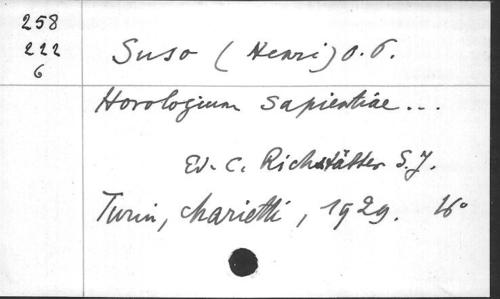 258
222
6
Suso (Henri) O.P.
Horologium Sapientiae...
Ed. C. Richstätter S.J.
Turin, Marietti, 1929. 16°